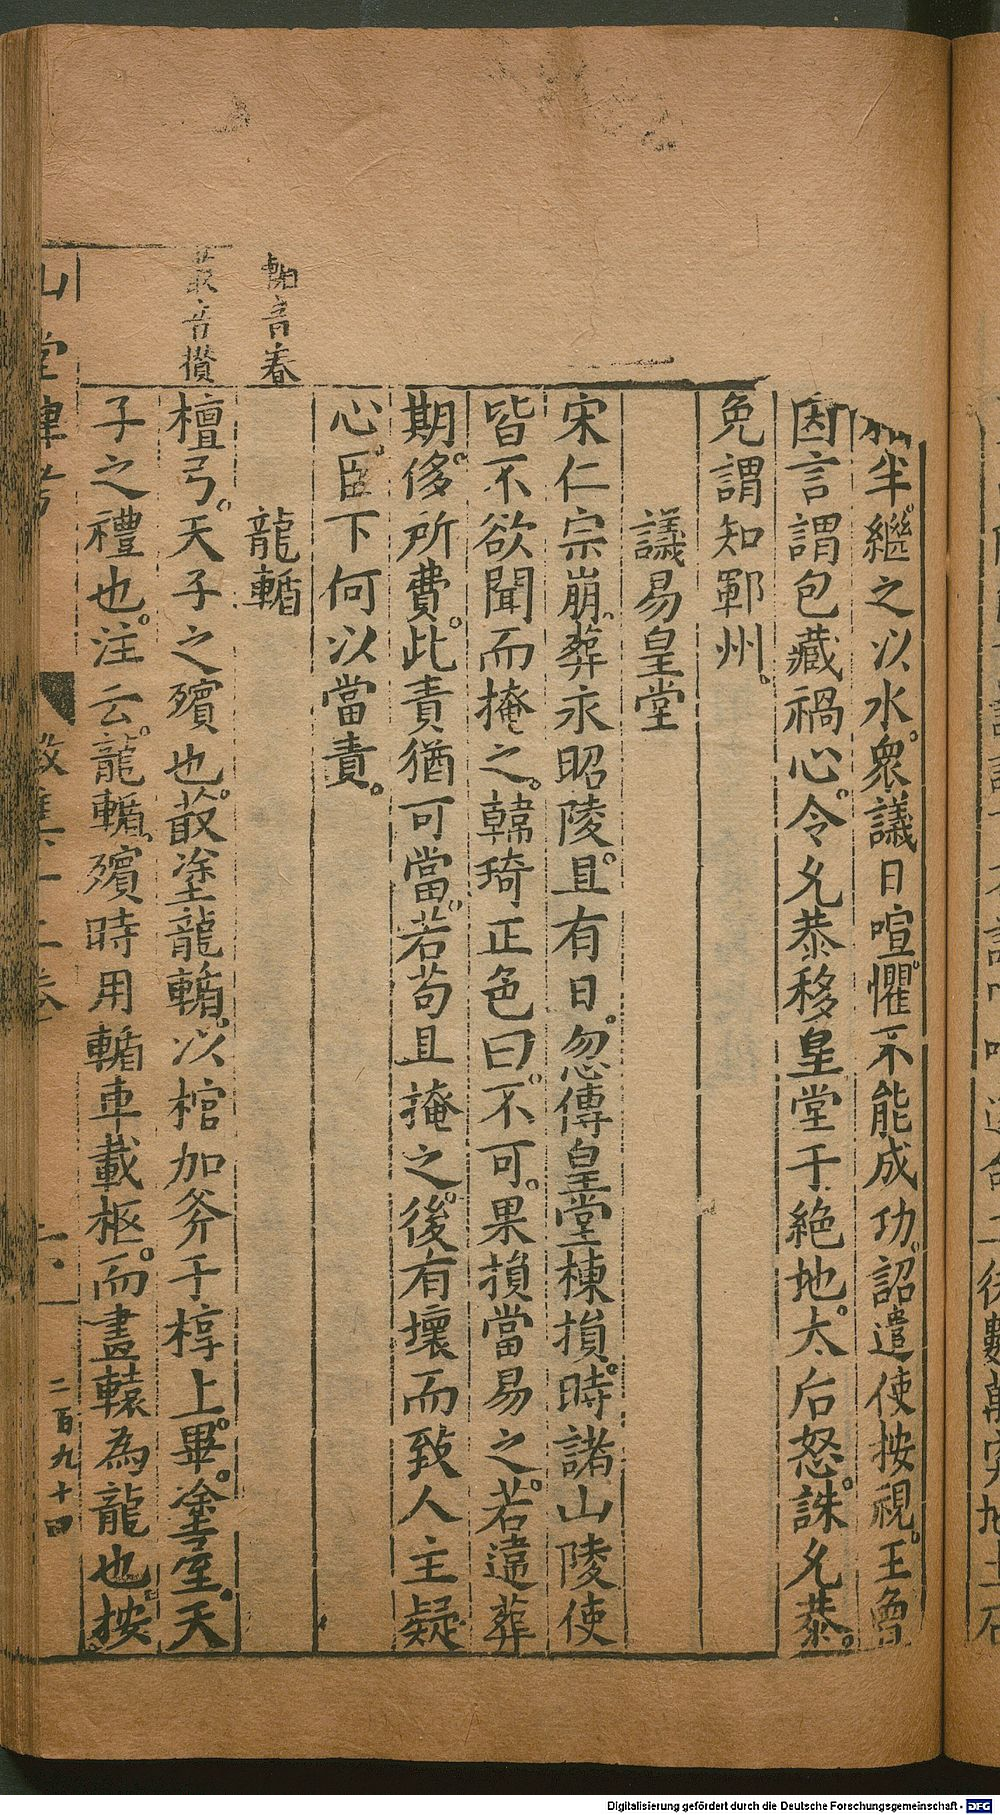 相半繼之以水衆議日喧懼不能成功詔遣使按視王曾
因言謂包藏禍心令允恭移皇堂于絶地太后怒誅允恭
免謂知鄆州
議易皇堂
宋仁宗崩葬永昭陵且有日忽傳皇堂棟損時諸山陵使
皆不欲聞而掩之韓琦正色曰不可果損當易之若違葬
期侈所費此責猶可當若苟且掩之後有壞而致人主疑
心臣下何以當責
龍輴
輴音春
檀弓天子之殯也菆塗龍輴以椁加斧于椁上畢塗室天
菆音攢
子之禮也注云龍輴殯時用輴車載柩而畫轅為龍也按
山堂肆考
二百九十四
Digitalisierung gefördert durch die Deutsche Forschungsgemeinschaft - DFG